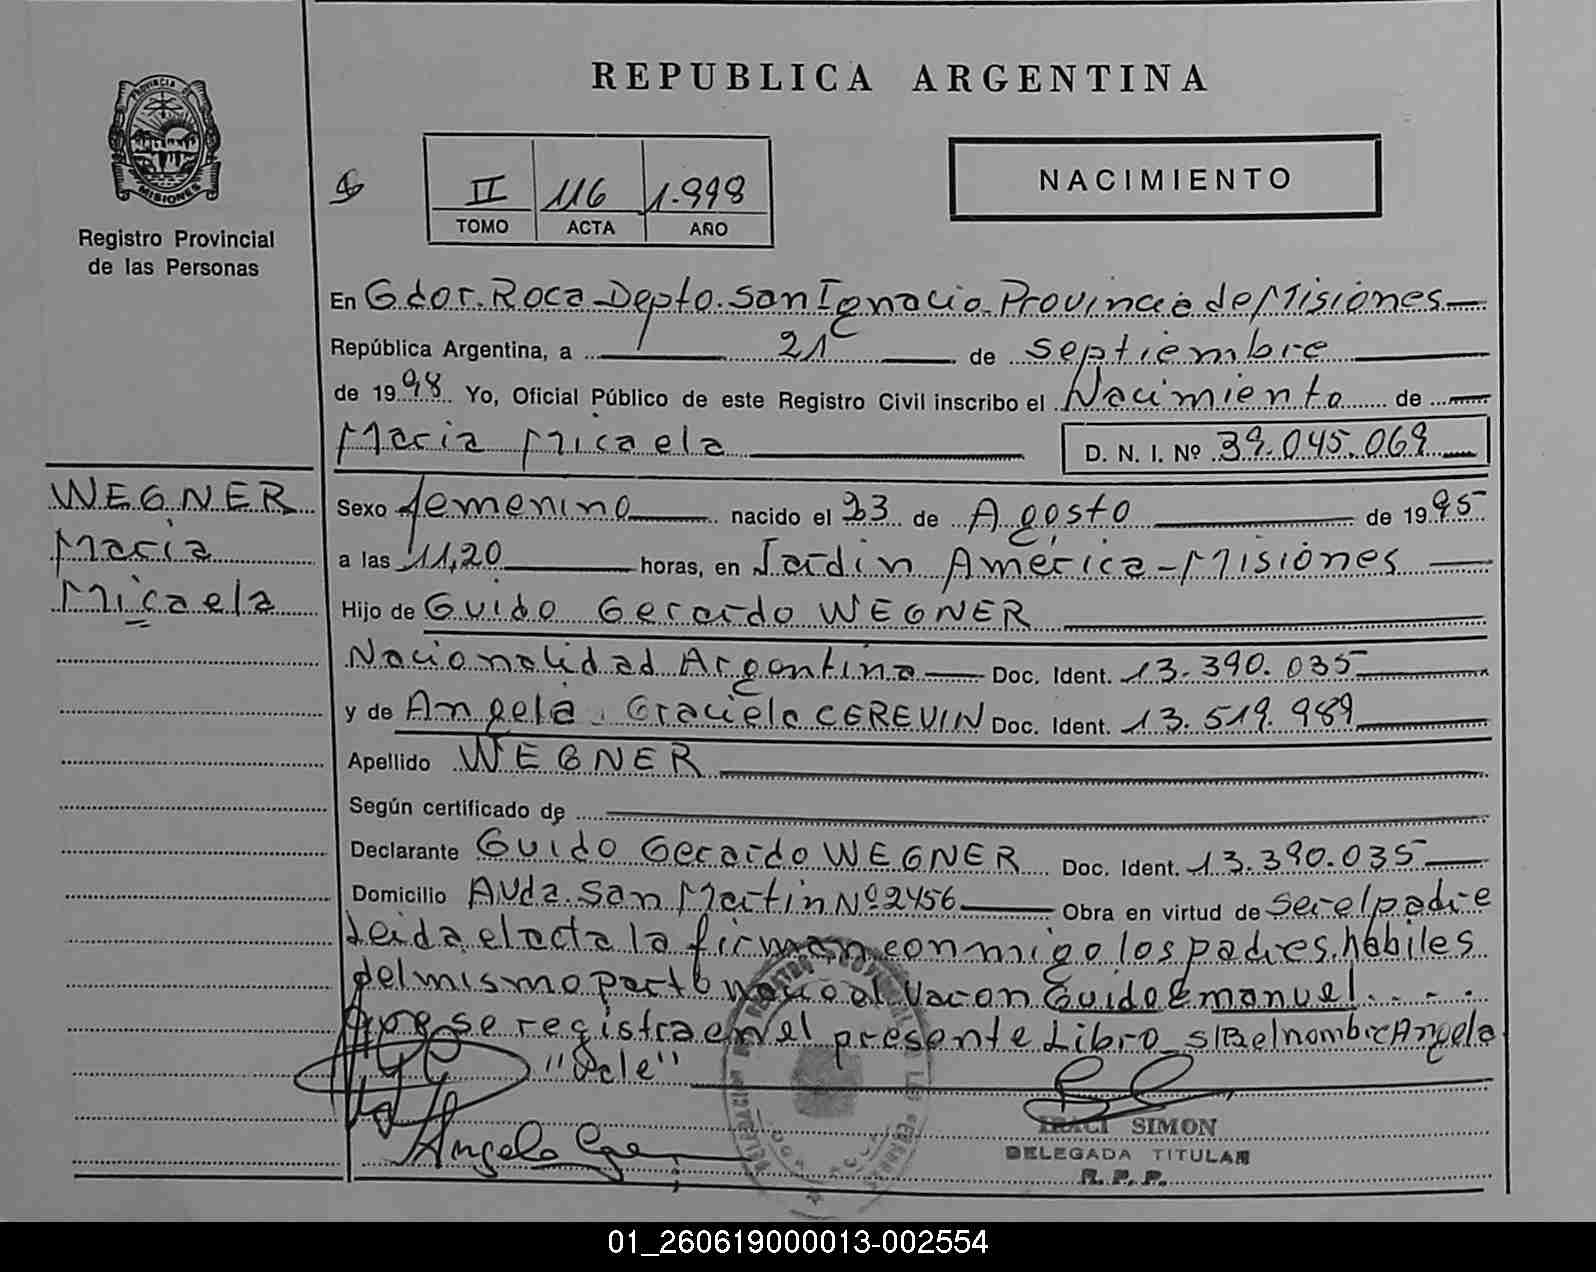 REPUBLICA ARGENTINA
PROVINCIA DE
MISIONES
Registro Provincial
de las Personas
II 116 1.998
TOMO ACTA AÑO
NACIMIENTO
En Gdor. Roca Depto. San Ignacio Provincia de Misiones
República Argentina, a 21 de septiembre
de 1998 Yo, Oficial Público de este Registro Civil inscribo el Nacimiento de
Maria Micaela D. N. I. Nº 39.045.069
WEGNER
Maria
Micaela
Sexo femenino nacido el 23 de Agosto de 1995
a las 11,20 horas, en Jardin América - Misiones
Hijo de Guido Gerardo WEGNER
Nacionalidad Argentina Doc. Ident. 13.390.035
y de Angela Graciela CEREVIN Doc. Ident. 13.519.989
Apellido WEGNER
Según certificado de
Declarante Guido Gerardo WEGNER Doc. Ident. 13.390.035
Domicilio Avda. San Martin Nº 2456 Obra en virtud de ser el padre
Leida el acta la firman conmigo los padres, hábiles
del mismo parto nacio el varon Guido Emanuel
que se registra en el presente Libro S/B el nombre Angela
"Vale"
Angela
IRACI SIMON
DELEGADA TITULAR
R. P. P.
01_260619000013-002554